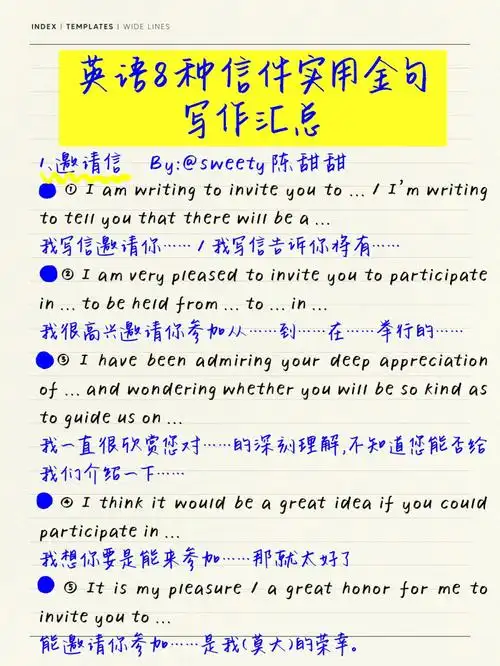 INDEX | TEMPLATES | WIDE LINES
英语8种信件实用金句
写作汇总
1.邀请信 By:@sweety陈甜甜
① I am writing to invite you to ... / I'm writing
to tell you that there will be a ...
我写信邀请你…… / 我写信告诉你将有……
② I am very pleased to invite you to participate
in ... to be held from ... to ... in ...
我很高兴邀请你参加从……到……在……举行的……
③ I have been admiring your deep appreciation
of ... and wondering whether you will be so kind as
to guide us on ...
我一直很欣赏您对……的深刻理解,不知道您能否给
我们介绍一下……
④ I think it would be a great idea if you could
participate in ...
我想你要是能来参加……那就太好了
⑤ It is my pleasure / a great honor for me to
invite you to ...
能邀请你参加……是我(莫大)的荣幸。